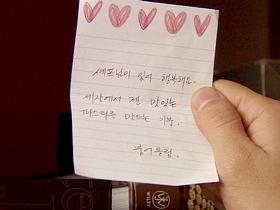 셰프님이 있어 행복해요.
세상에서 젤 맛있는
파스타를 만드는 기분.
WILEY